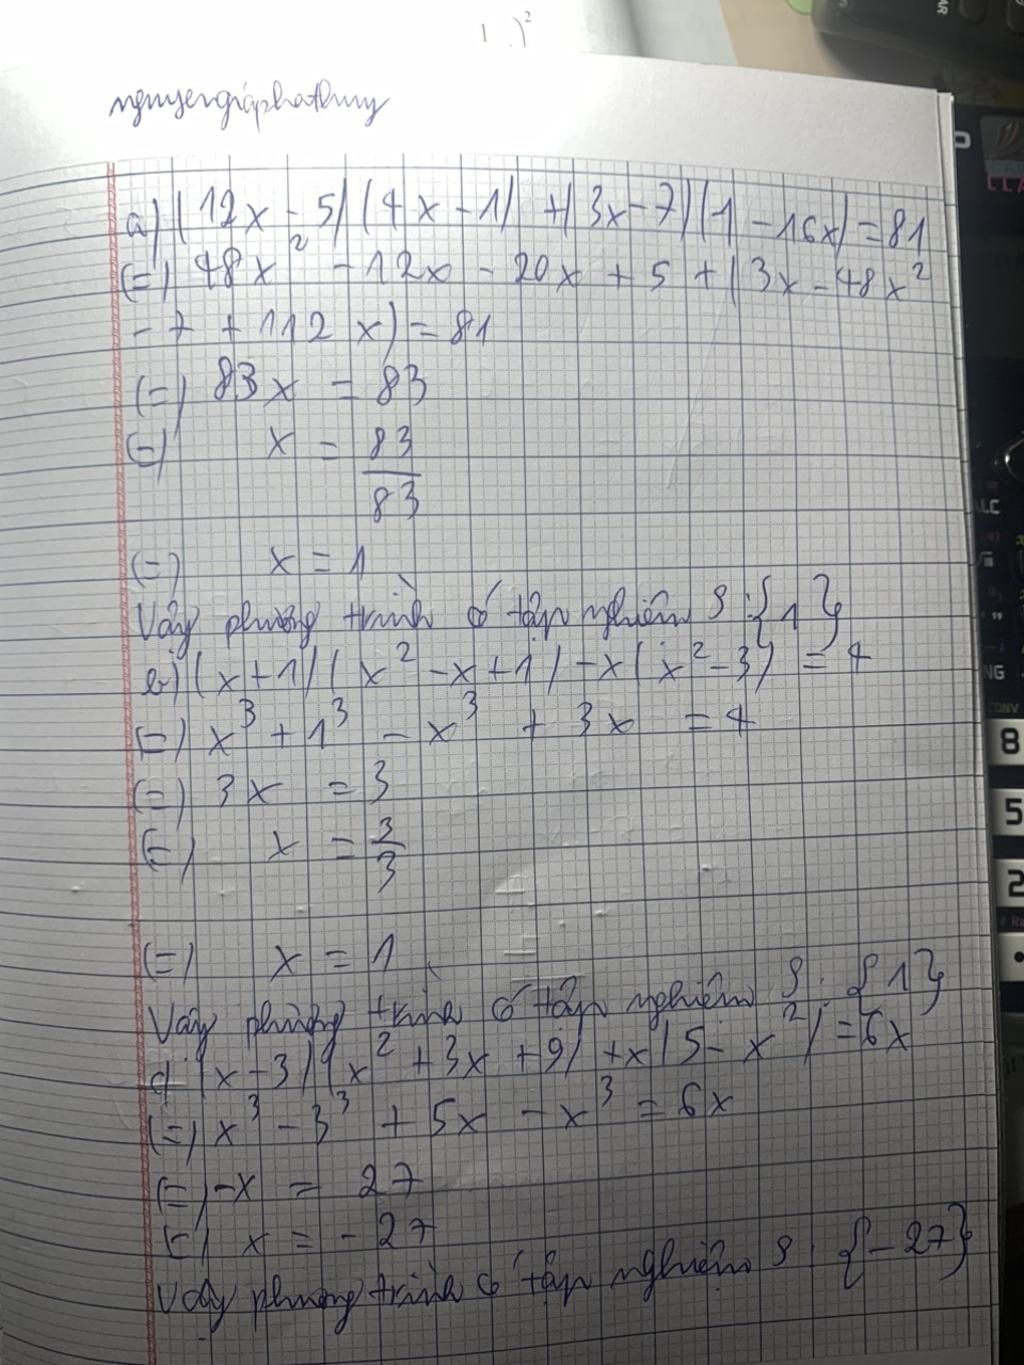 1 .)²
nguyengiaphathuy
a) (12x - 5)(4x - 1) + (3x - 7)(1 - 16x) = 81
(=) 48x² - 12x - 20x + 5 + (3x - 48x²
- 7 + 112x) = 81
(=) 83x = 83
(=) x = 83/83
(=) x = 1
Vậy phương trình có tập nghiệm S : {1}
b) (x + 1)(x² - x + 1) - x(x² - 3) = 4
(=) x³ + 1³ - x³ + 3x = 4
(=) 3x = 3
(=) x = 3/3
(=) x = 1
Vậy phương trình có tập nghiệm S : {1}
c) (x - 3)(x² + 3x + 9) + x(5 - x²) = 6x
(=) x³ - 3³ + 5x - x³ = 6x
(=) -x = 27
(=) x = -27
Vậy phương trình có tập nghiệm S : {-27}
AR
LC
NG
CONV
8
5
2